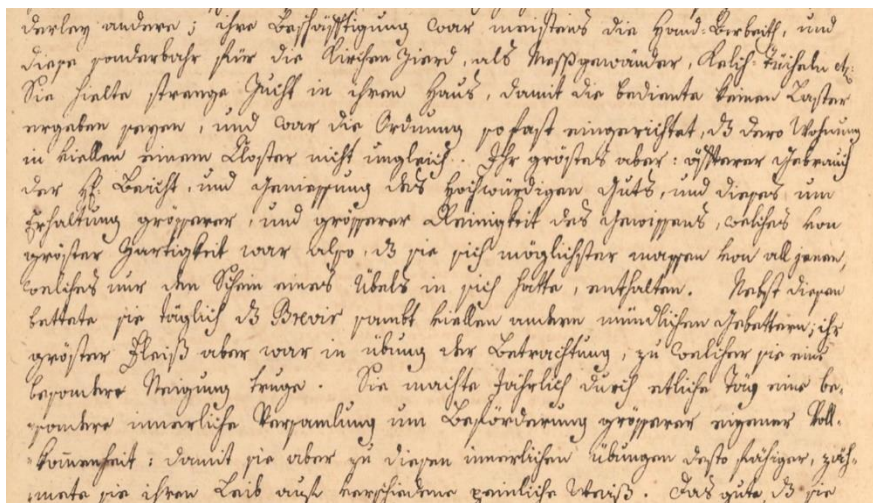 derley andere; ihre Beschäfftigung war meistens die Hand-Arbeith, und
diese sonderbahr für die Kirchen Zierd, als Meßgewänder, Kelch-Tücheln etc:
Sie hielte strenge Zucht in ihren Haus, damit die bediente keinen Laster
ergeben seyen, und war die Ordnung so fast eingerichtet, dz dero Wohnung
in viellen einem Closter nicht ungleich. Ihr gröstes aber: össterer Gebrauch
der Hl: Beicht, und Geniessung des Hochwürdigen Guts, und dieses um
Erhaltung grösserer, und grösserer Reinigkeit des Gewissens, welches von
gröster Zartigkeit war also, dz sie sich möglichster massen von all jenen,
welches nur den Schein eines Übels in sich hatte, enthalten. Nebst diesen
bettete sie täglich dz Brevir sambt viellen andern mündlichen Gebettern; ihr
gröster Fleiß aber war in übung der Betrachtung, zu welcher sie eine
besondere Neigung truge. Sie machte Jährlich durch etliche Täg eine be-
sondere innerliche Versamlung um Beförderung grösserer eigener Voll-
kom̅enheit: damit sie aber zu diesen innerlichen übungen desto fähiger, zäh-
mete sie ihren Leib auf verschiedene peinliche Weiß. Das gute dz sie